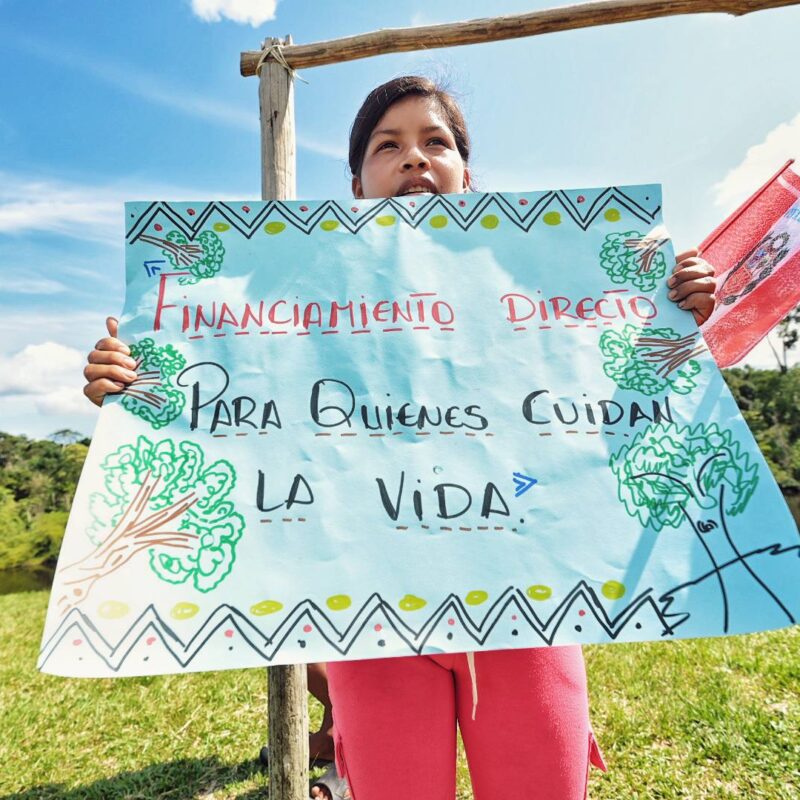 «FINANCIAMIENTO DIRECTO
PARA QUIENES CUIDAN
LA VIDA.»